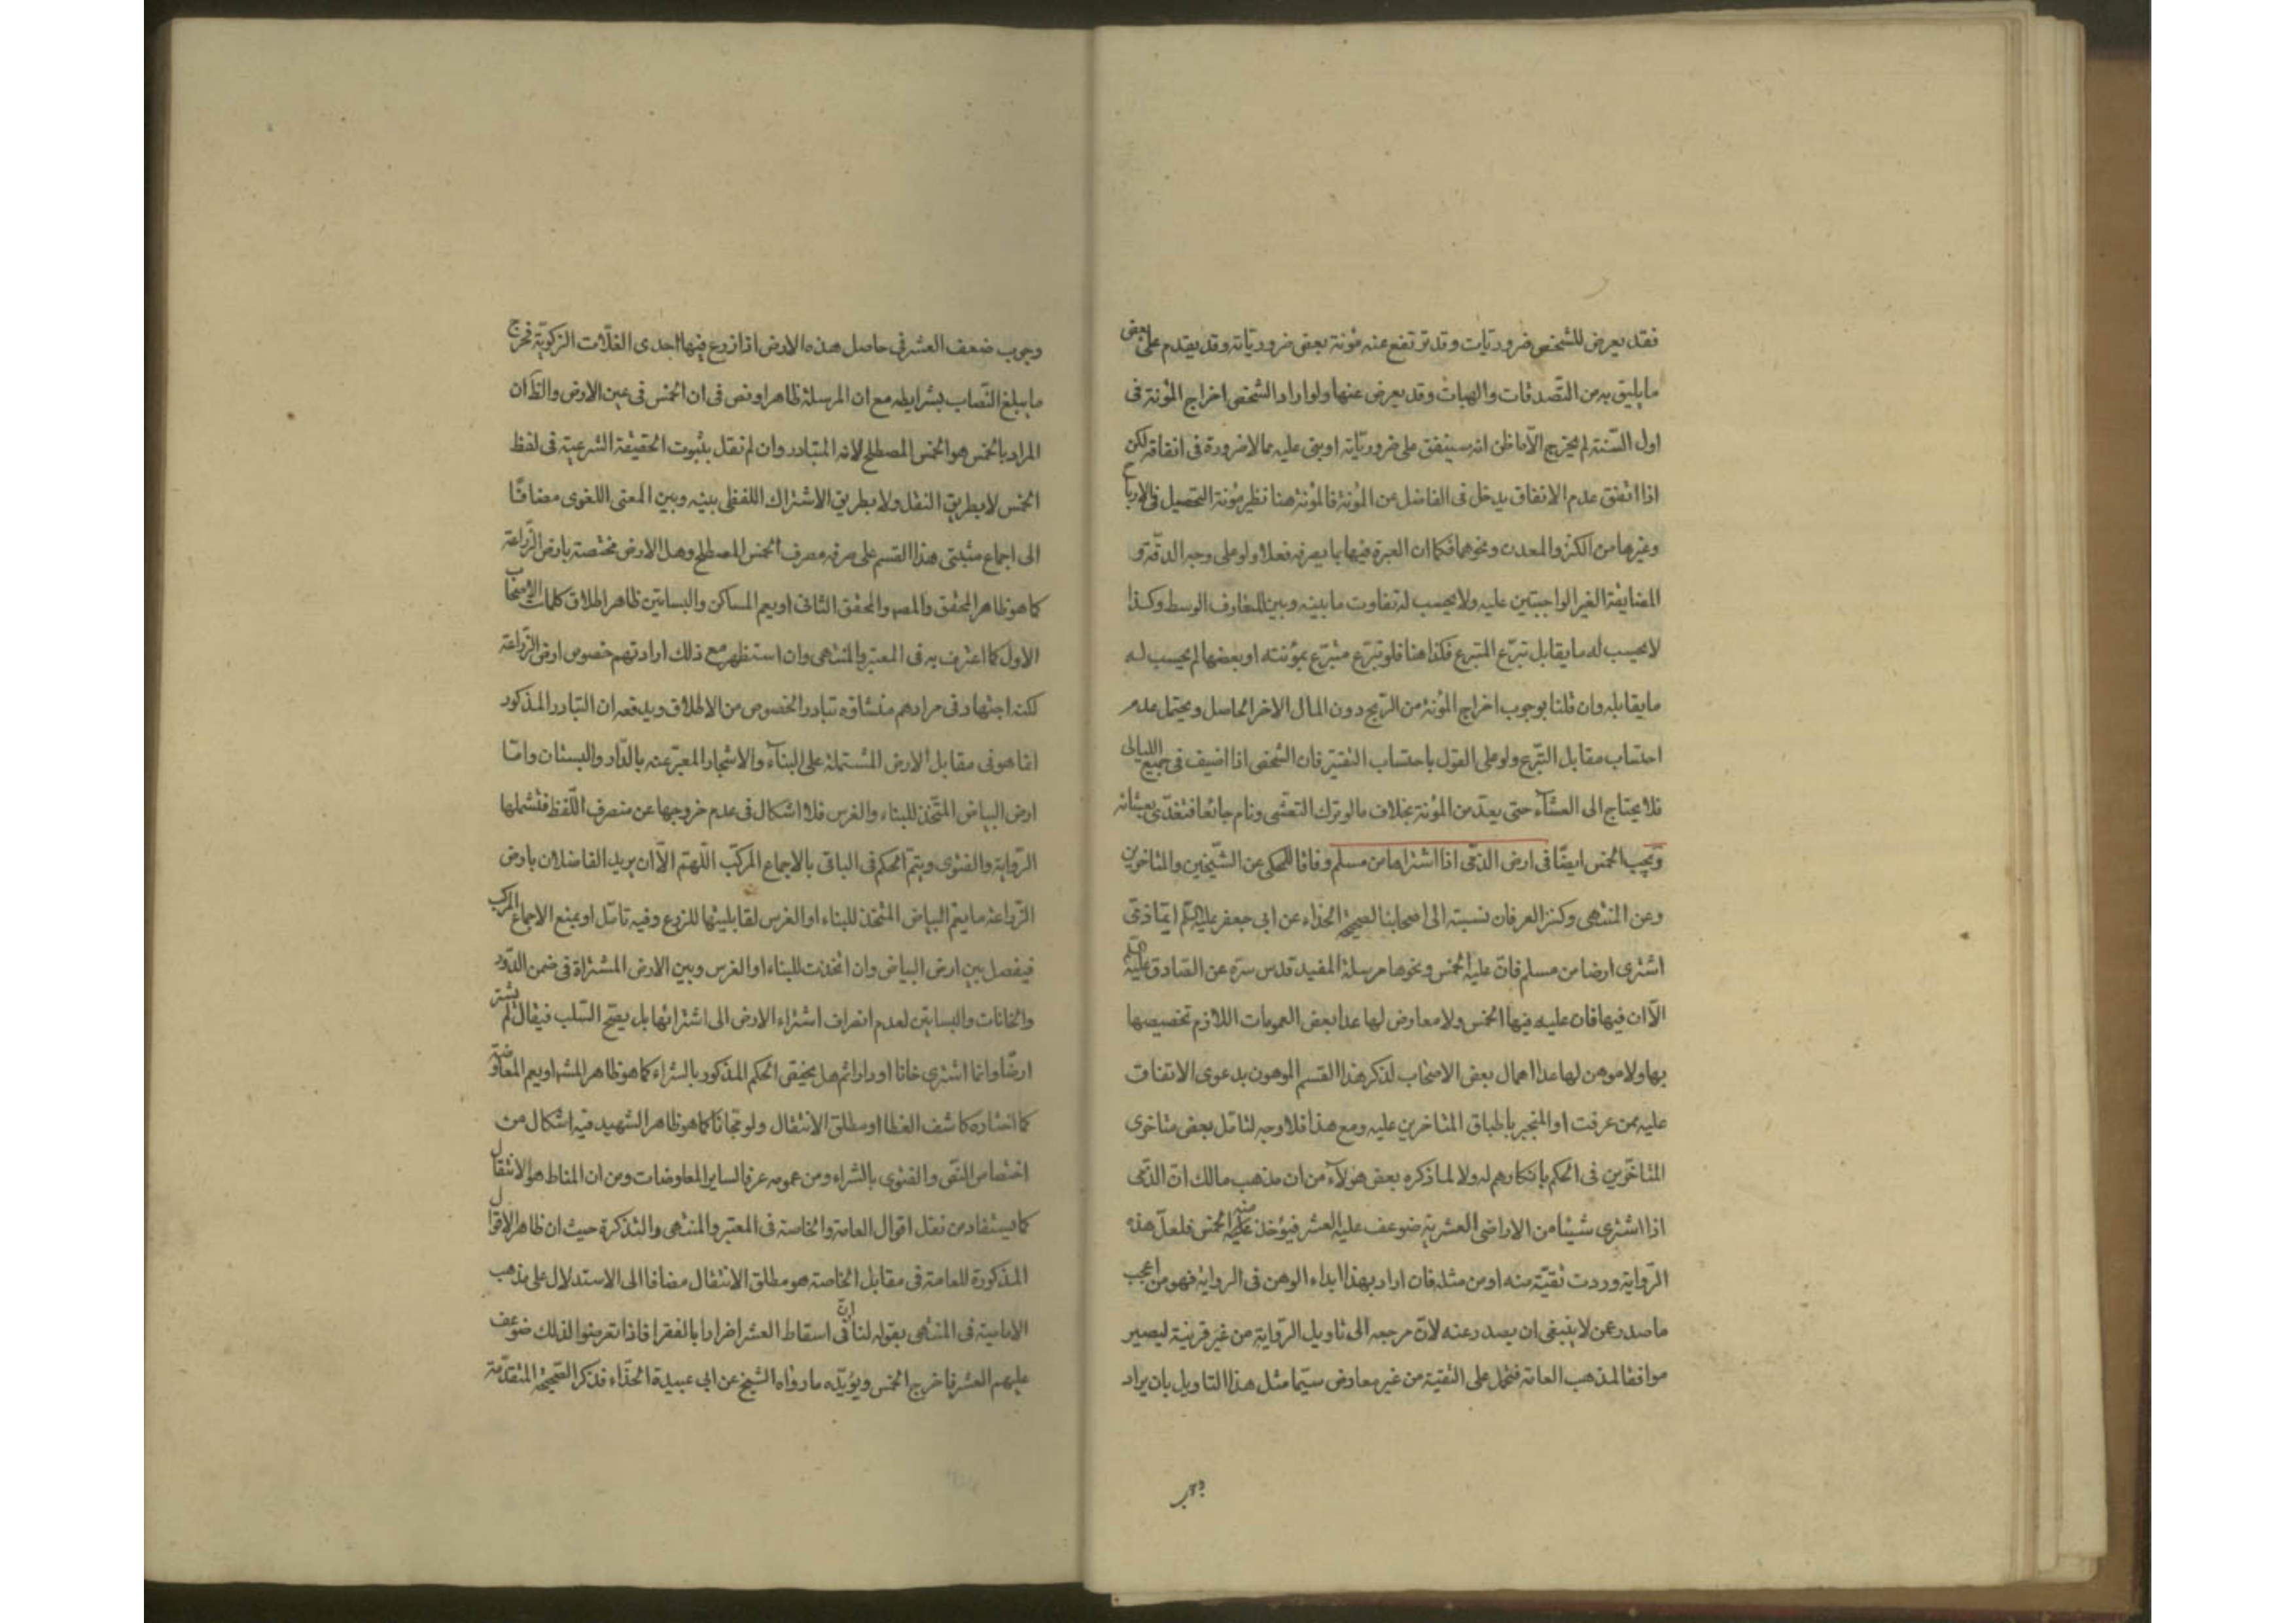 فقد يعرض للشخص ضروريات وقد ترتفع عنه مؤنة بعض ضرورياته وقد يقدم على بعض
ما يليق به من التصدقات والهبات وقد يعرض عنها ولو اراد الشخص اخراج المؤنة فى
اول السنة لم يخرج الّا ما ظن انه سينفق على ضرورياته او بنى عليه مما لا ضرورة فى انفاقه لكن
اذا اتفق عدم الانفاق يدخل فى الفاضل عن المؤنة فالمؤنة هنا نظير مؤنة التحصيل فى الارباح
وغيرها من الكنز والمعدن ونحوهما فكما ان العبرة فيها بما يصرفه فعلا ولو على وجه الدقّة و
المضايقة الغير الواجبتين عليه ولا يحسب له تفاوت ما بينه وبين المتعارف الوسط وكذا
لا يحسب له ما يقابل تبرّع المتبرع فكذا هنا فلو تبرّع متبرّع بمؤنته او بعضها لم يحسب له
ما يقابله وان قلنا بوجوب اخراج المؤنة من الربح دون المال الاخر الحاصل ويحتمل عدم
احتساب مقابل التبرّع ولو على القول باحتساب التقتير فان الشخص اذا اضيف فى جميع الليالى
فلا يحتاج الى العشاء حتى يعدّ من المؤنة بخلاف ما لو ترك التعشى ونام جائعا فتغدّى بعشائه
ويجب الخمس ايضًا فى ارض الذمّى اذا اشتراها من مسلم وفاقا للمحكى عن الشيخين والمتاخرين
وعن المنتهى وكنز العرفان نسبته الى اصحابنا لصحيحة الحذاء عن ابى جعفر عليه السلم ايّما ذمّى
اشترى ارضا من مسلم فانّ عليه الخمس ونحوها مرسلة المفيد قدس سرّه عن الصادق عليه السلم
الّا ان فيها فان عليه فيها الخمس ولا معارض لها عدا بعض العمومات اللازم تخصيصها
بها ولا موهن لها عدا اهمال بعض الاصحاب لذكر هذا القسم الموهون بدعوى الاتفاق
عليه ممن عرفت او المنجبر باطباق المتاخرين عليه ومع هذا فلا وجه لتامّل بعض متاخرى
المتاخّرين فى الحكم بانكارهم له ولا لما ذكره بعض هؤلاء من ان مذهب مالك انّ الذمّى
اذا اشترى شيئا من الاراضى العشرية ضوعف عليه العشر فيؤخذ منه الخمس فلعلّ هذه
الرّواية وردت تقيّة منه او من مثله فان اراد بهذا ابداء الوهن فى الرواية فهو من اعجب
ما صدر عمن لا ينبغى ان يصدر عنه لانّ مرجعه الى تاويل الرّواية من غير قرينة ليصير
موافقا لمذهب العامة فتحمل على التقيّة من غير معارض سيّما مثل هذا التاويل بان يراد
وجوب ضعف العشر فى حاصل هذه الارض اذا زرع فيها احدى الغلّات الزكويّة فخرج
ما يبلغ النّصاب بشرايطه مع ان المرسلة ظاهر او نص فى ان الخمس فى عين الارض والظّ ان
المراد بالخمس هو الخمس المصطلح لانه المتبادر وان لم نقل بثبوت الحقيقة الشرعية فى لفظ
الخمس لا بطريق النقل ولا بطريق الاشتراك اللفظى بينه وبين المعنى اللغوى مضافًا
الى اجماع مثبتى هذا القسم على صرفه مصرف الخمس المصطلح وهل الارض مختصة بارض الزّراعة
كما هو ظاهر المحقق والمصـ والمحقق الثانى او يعم المساكن والبساتين ظاهر اطلاق كلمات الاصحاب
الاول كما اعترف به فى المعتبر والمنتهى وان استظهر مع ذلك ارادتهم خصوص ارض الزّراعة
لكنه اجتهاد فى مرادهم منشاؤه تبادر الخصوص من الاطلاق ويدفعه ان التبادر المذكور
انما هو فى مقابل الارض المشتملة على البناء والاشجار المعبّر عنه بالدّار والبستان وامّا
ارض البياض المتّخذ للبناء والغرس فلا اشكال فى عدم خروجها عن منصرف اللّفظ فتشملها
الرّواية والفتوى ويتمّ الحكم فى الباقى بالاجماع المركّب اللّهمّ الّا ان يريد الفاضلان بارض
الزّراعة ما يعمّ البياض المتّخذ للبناء او الغرس لقابليتها للزرع وفيه تامّل او يمنع الاجماع المركّب
فيفصل بين ارض البياض وان اتخذت للبناء او الغرس وبين الارض المشتراة فى ضمن الدّور
والخانات والبساتين لعدم انصراف اشتراء الارض الى اشترائها بل يصحّ السّلب فيقال لم يشتر
ارضًا وانما اشترى خانا او دارا ثم هل يختص الحكم المذكور بالشراء كما هو ظاهر المشهـ او يعم المعاوضة
كما اختاره كاشف الغطا او مطلق الانتقال ولو مجّانًا كما هو ظاهر الشهيد فيه اشكال من
اختصاص النّص والفتوى بالشراء ومن عمومه عرفا لساير المعاوضات ومن ان المناط هو الانتقال
كما يستفاد من نقل اقوال العامة والخاصة فى المعتبر والمنتهى والتذكرة حيث ان ظاهر الاقوال
المذكورة للعامة فى مقابل الخاصة هو مطلق الانتقال مضافا الى الاستدلال على مذهب
الامامية فى المنتهى بقوله لنا انّ فى اسقاط العشر اضرارا بالفقراء فاذا تعرضوا لذلك ضوعف
عليهم العشر فاخرج الخمس ويؤيّده ما رواه الشيخ عن ابى عبيدة الحذّاء فذكر الصّحيحة المتقدّمة